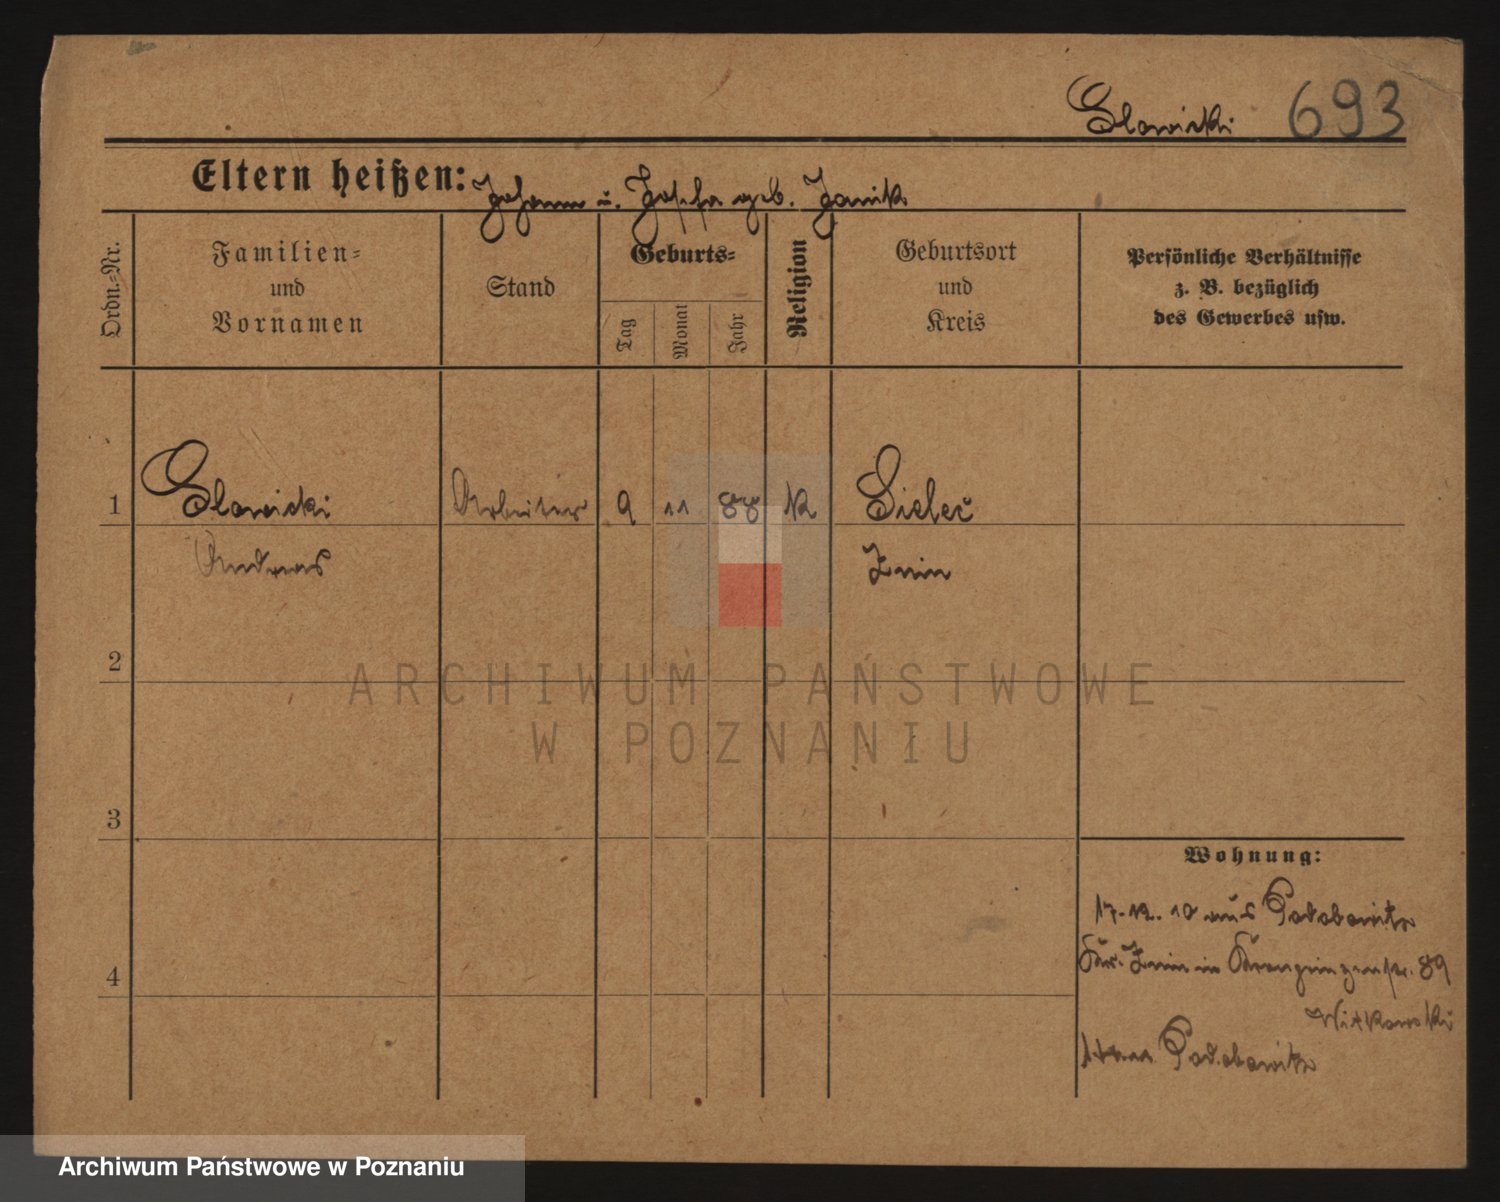 Slowicki 693
Eltern heißen: Johann u. Josefa geb. Janik
Ordn.-Nr.
Familien-
und
Vornamen
Stand
Geburts-
Tag
Monat
Jahr
Religion
Geburtsort
und
Kreis
Persönliche Verhältnisse
z. B. bezüglich
des Gewerbes usw.
1 Slowicki Arbeiter 9 11 88 K Sielec
Andreas Znin
2
3
4
Wohnung:
17.12.10 aus Podobowitz
Kr. Znin in Kronprinzenstr. 89
Witkowski
Podobowitz
ARCHIWUM PAŃSTWOWE
W POZNANIU
Archiwum Państwowe w Poznaniu